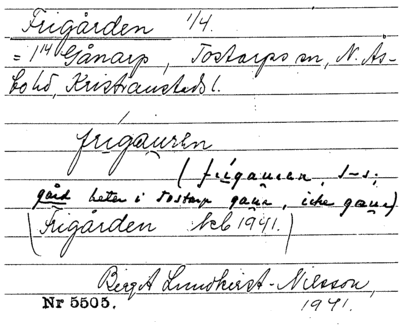 Frigården 1/4.
= 1¹⁴ Gånarp, Tostarps sn, N. Ås-
bo hd, Kristianstads l.
frígau̯ren
(frígau̯ren, s-s;
gård heter i Tostarp gau̯r, icke gau̯r)
(Frigården beb 1941.)
Birgit Lundkvist-Nilsson,
1941.
Nr 5503.